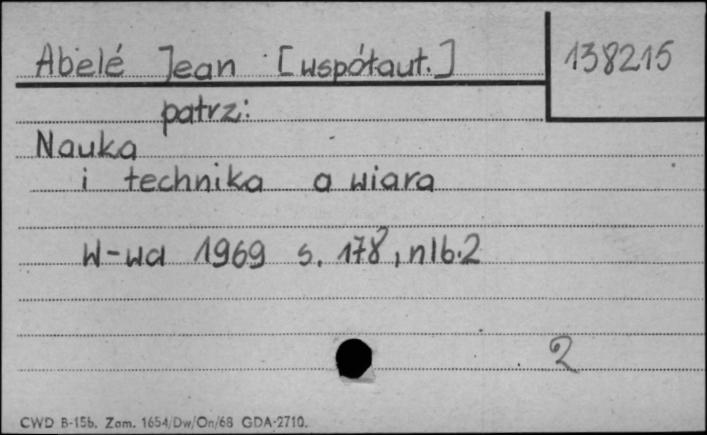 Abelé Jean [współaut.] 138215
patrz:
Nauka
i technika a wiara
W-wa 1969 s. 178, nlb.2
2
CWD B-15b. Zam. 1654/Dw/On/68 GDA-2710.